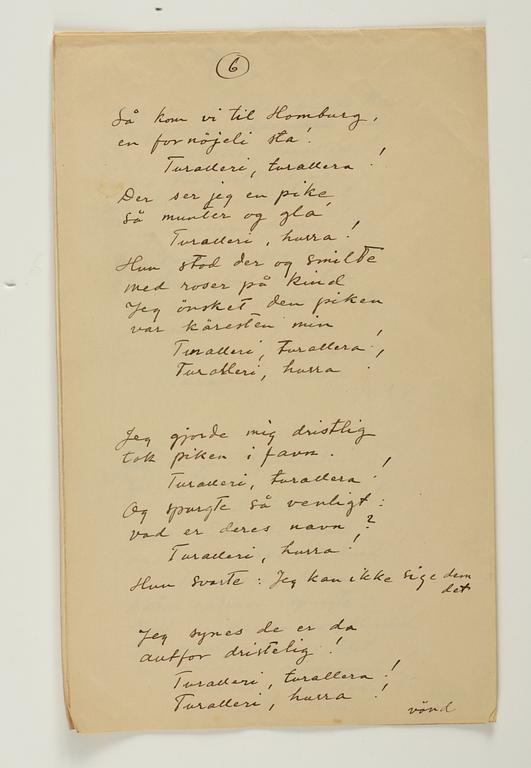 6
Så kom vi til Homburg,
en fornöjeli sta!
Turalleri, turallera!
Der ser jeg en pike
så munter og gla
Turalleri, hurra!
Hun stod der og smilte
med roser på kind
Jeg önsket den piken
var käresten min
Turalleri, turallera!,
Turalleri, hurra!
Jeg gjorde mig dristlig
tok piken i favn.
Turalleri, turallera!
Og spurgte så venligt:
vad er deres navn?
Turalleri, hurra!
Hun svarte: Jeg kan ikke sige dem
det
Jeg synes de er da
altfor dristelig!
Turalleri, turallera!
Turalleri, hurra!
vänd